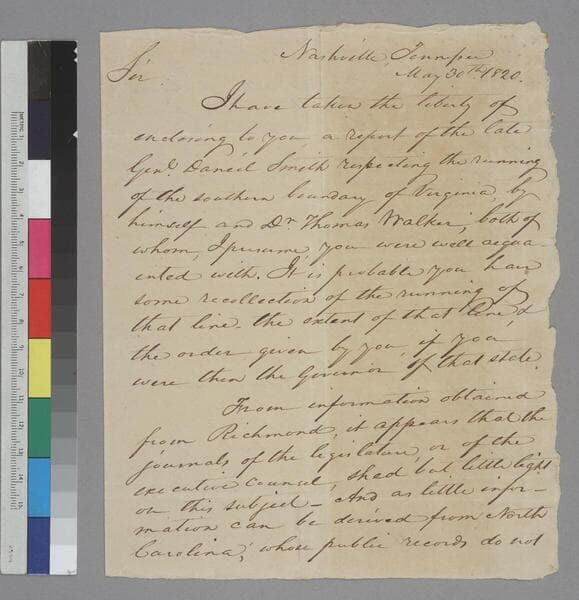 Nashville, Tennessee
May 30th 1820.
Sir
I have taken the liberty of
enclosing to you a report of the late
Genl. Daniel Smith respecting the running
of the southern boundary of Virginia by
himself and Dr. Thomas Walker; both of
whom, I presume, you were well acqua-
inted with. It is probable you have
some recollection of the running of
that line. the extent of that line, &
the order given by you, if you
were then the Governor of that state.
From information obtained
from Richmond, it appears that the
journals of the legislature, or of the
executive council, shed but little light
on this subject – And as little infor-
mation can be derived from North
Carolina, whose public records do not